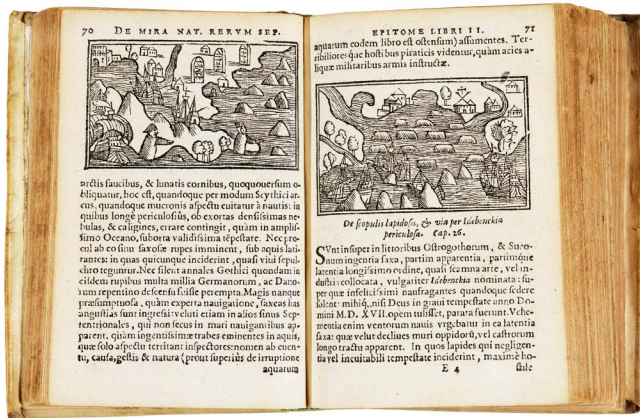 70 DE MIRA NAT. RERVM SEP.
arctis faucibus, & lunatis cornibus, quoquouersum o-
bliquatur, hoc est, quandoque per modum Scythici ar-
cus, quandoque mucronis aspectu euitatur à nautis: in
quibus longè periculosiùs, ob exortas densissimas ne-
bulas, & caligines, errare contingit, quàm in amplis-
simo Oceano, suborta validissima tẽpestate. Nec pro-
cul ab eo sinu saxosæ rupes imminent, sub aquis lati-
tantes: in quas quicunque inciderint, quasi viui sepul-
chro teguntur. Nec silent annales Gothici quondam in
eisdem rupibus multa millia Germanorum, ac Dano-
rum repentino desersu fuisse perempta. Magis nanque
præsumptuosa, quàm experta nauigatione, saxeas has
angustias sunt ingressi: veluti etiam in alios sinus Sep-
tentrionales, qui non secus in mari nauigantibus ap-
parent, quàm ingentissimæ trabes eminentes in aquis,
quæ solo aspectu territant inspectores: nomen ab euen-
tu, causa, gestis & natura (prout superiùs de irruptione
aquarum
EPITOME LIBRI II. 71
aquarum eodem libro est ostensum) assumentes. Ter-
ribilioresque hostibus piraticis videntur, quàm acies a-
liquæ militaribus armis instructæ.
De scopulis lapidosis, & via per Idebenckia
periculosa. Cap. 26.
SVnt insuper in littoribus Ostrogothorum, & Sueo-
num ingentia saxa, partim apparentia, partimque
latentia longissimo ordine, quasi scamna arte, vel in-
dustria collocata, vulgariter Idebenckia nominata: su-
per quæ infelicissimi naufragantes quandoque sedere
solent: mihique, nisi Deus in graui tempestate anno Do-
mini M.D.XVII. opem tulisset, parata fuerunt. Vehe-
mentia enim ventorum nauis vrgebatur in ea latentia
saxa: quæ velut decliues muri oppidorũ, vel castrorum
longo tractu apparent. In quos lapides qui negligen-
tia vel ineuitabili tempestate inciderint, maximè ho-
E 4 stile